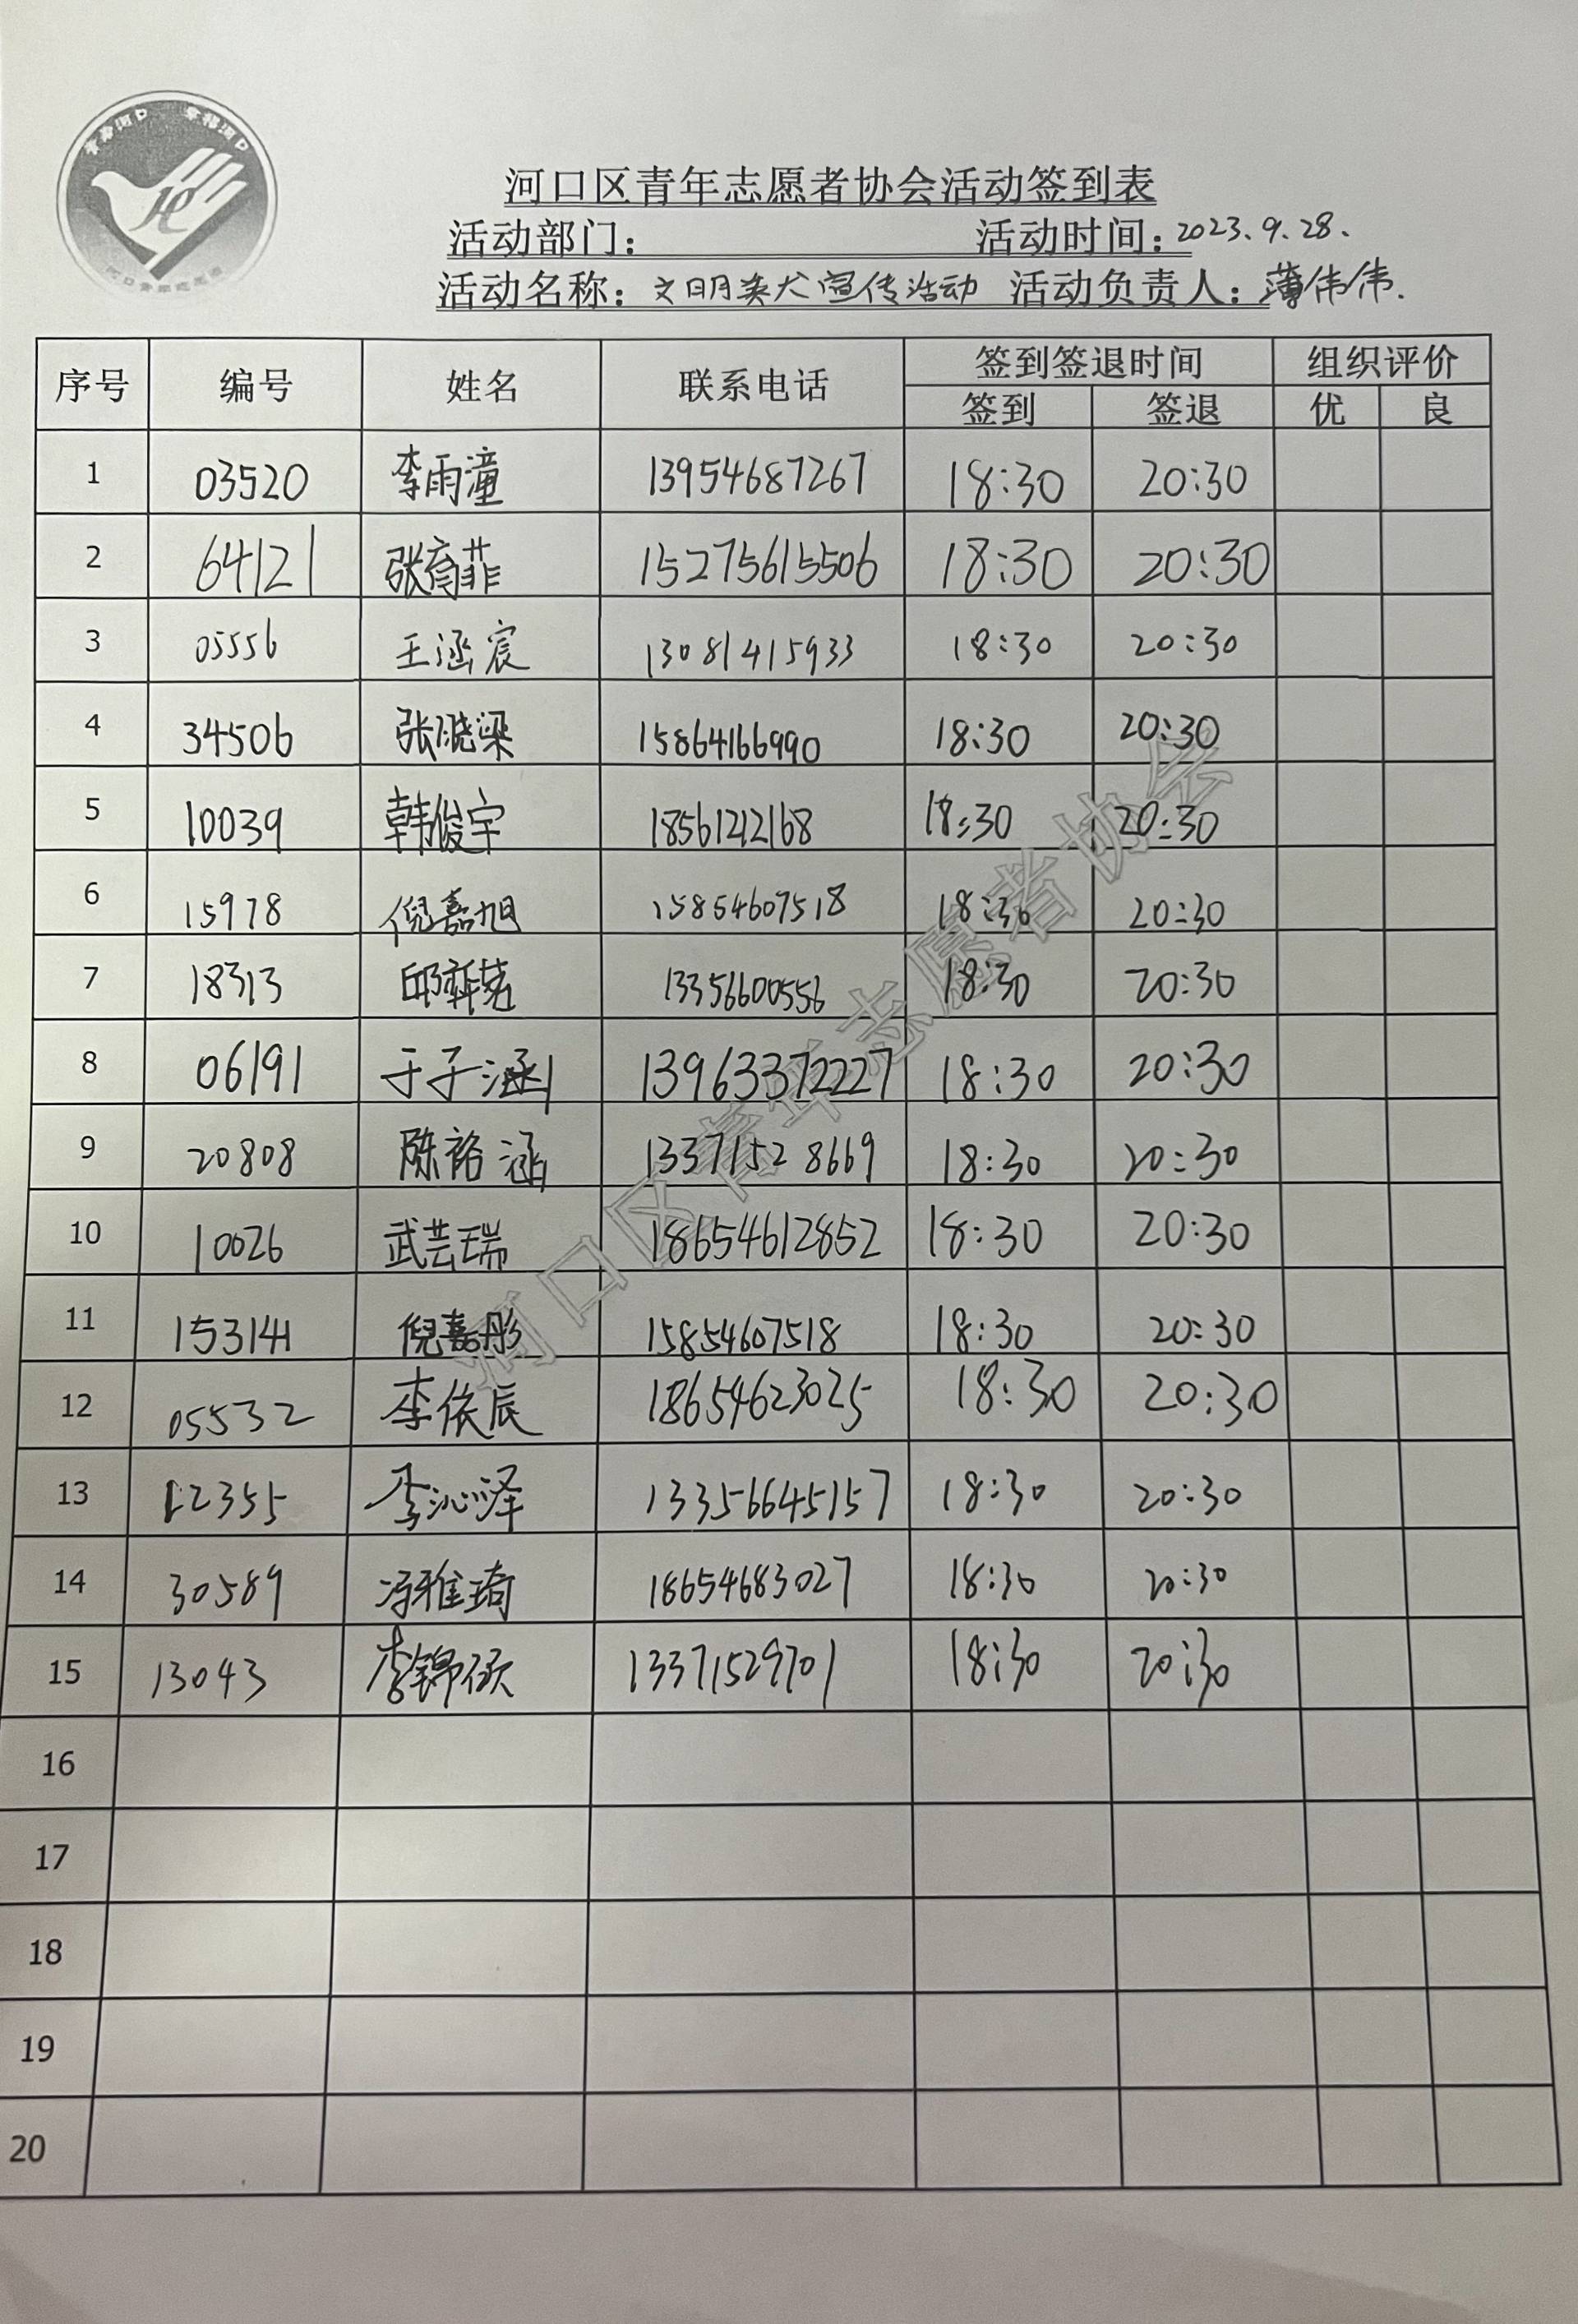 青春河口 幸福河口
河口区青年志愿者协会活动签到表
活动部门： 活动时间：2023.9.28.
活动名称：文明养犬宣传活动 活动负责人：薄伟伟.
序号 编号 姓名 联系电话 签到签退时间 组织评价
签到 签退 优 良
1 03520 李雨潼 13954687267 18:30 20:30
2 64121 张育菲 15275615506 18:30 20:30
3 05556 王涵宸 13081415933 18:30 20:30
4 34506 张 梁 15864166990 18:30 20:30
5 10039 韩俊宇 18561212168 18:30 20:30
6 15978 倪嘉旭 15854607518 18:30 20:30
7 18313 邱 13356600556 18:30 20:30
8 06191 于子涵 13963372227 18:30 20:30
9 20808 陈裕涵 13371528669 18:30 20:30
10 10026 武芸瑞 18654612852 18:30 20:30
11 倪嘉彤 15854607518 18:30 20:30
12 05532 李依辰 18654623025 18:30 20:30
13 12355 李沁泽 13356645157 18:30 20:30
14 30589 冯雅琦 18654683027 18:30 20:30
15 13043 李锦 13371529701 18:30 20:30
16
17
18
19
20
河口区青年志愿者协会